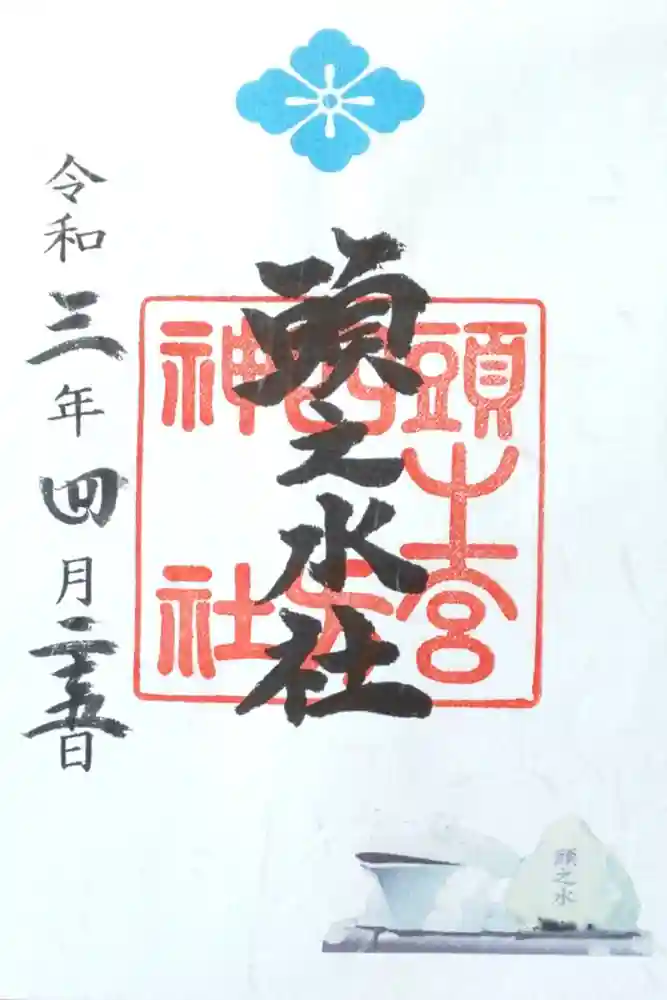 頭之水社
頭之宮
四方
神社
令和三年四月二十五日
頭之水